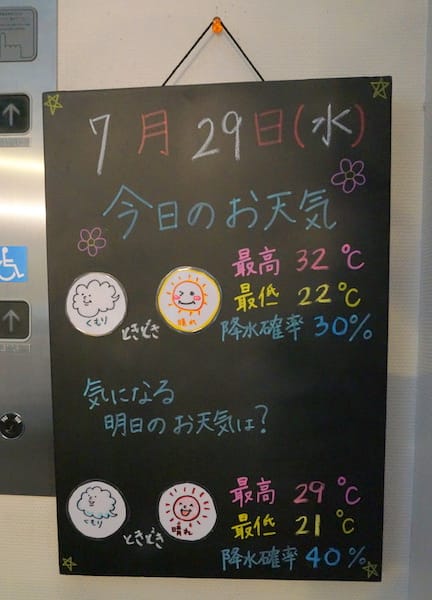 7月29日(水)
今日のお天気
くもり ときどき 晴れ
最高 32℃
最低 22℃
降水確率 30%
気になる
明日のお天気は?
くもり ときどき 晴れ
最高 29℃
最低 21℃
降水確率 40%